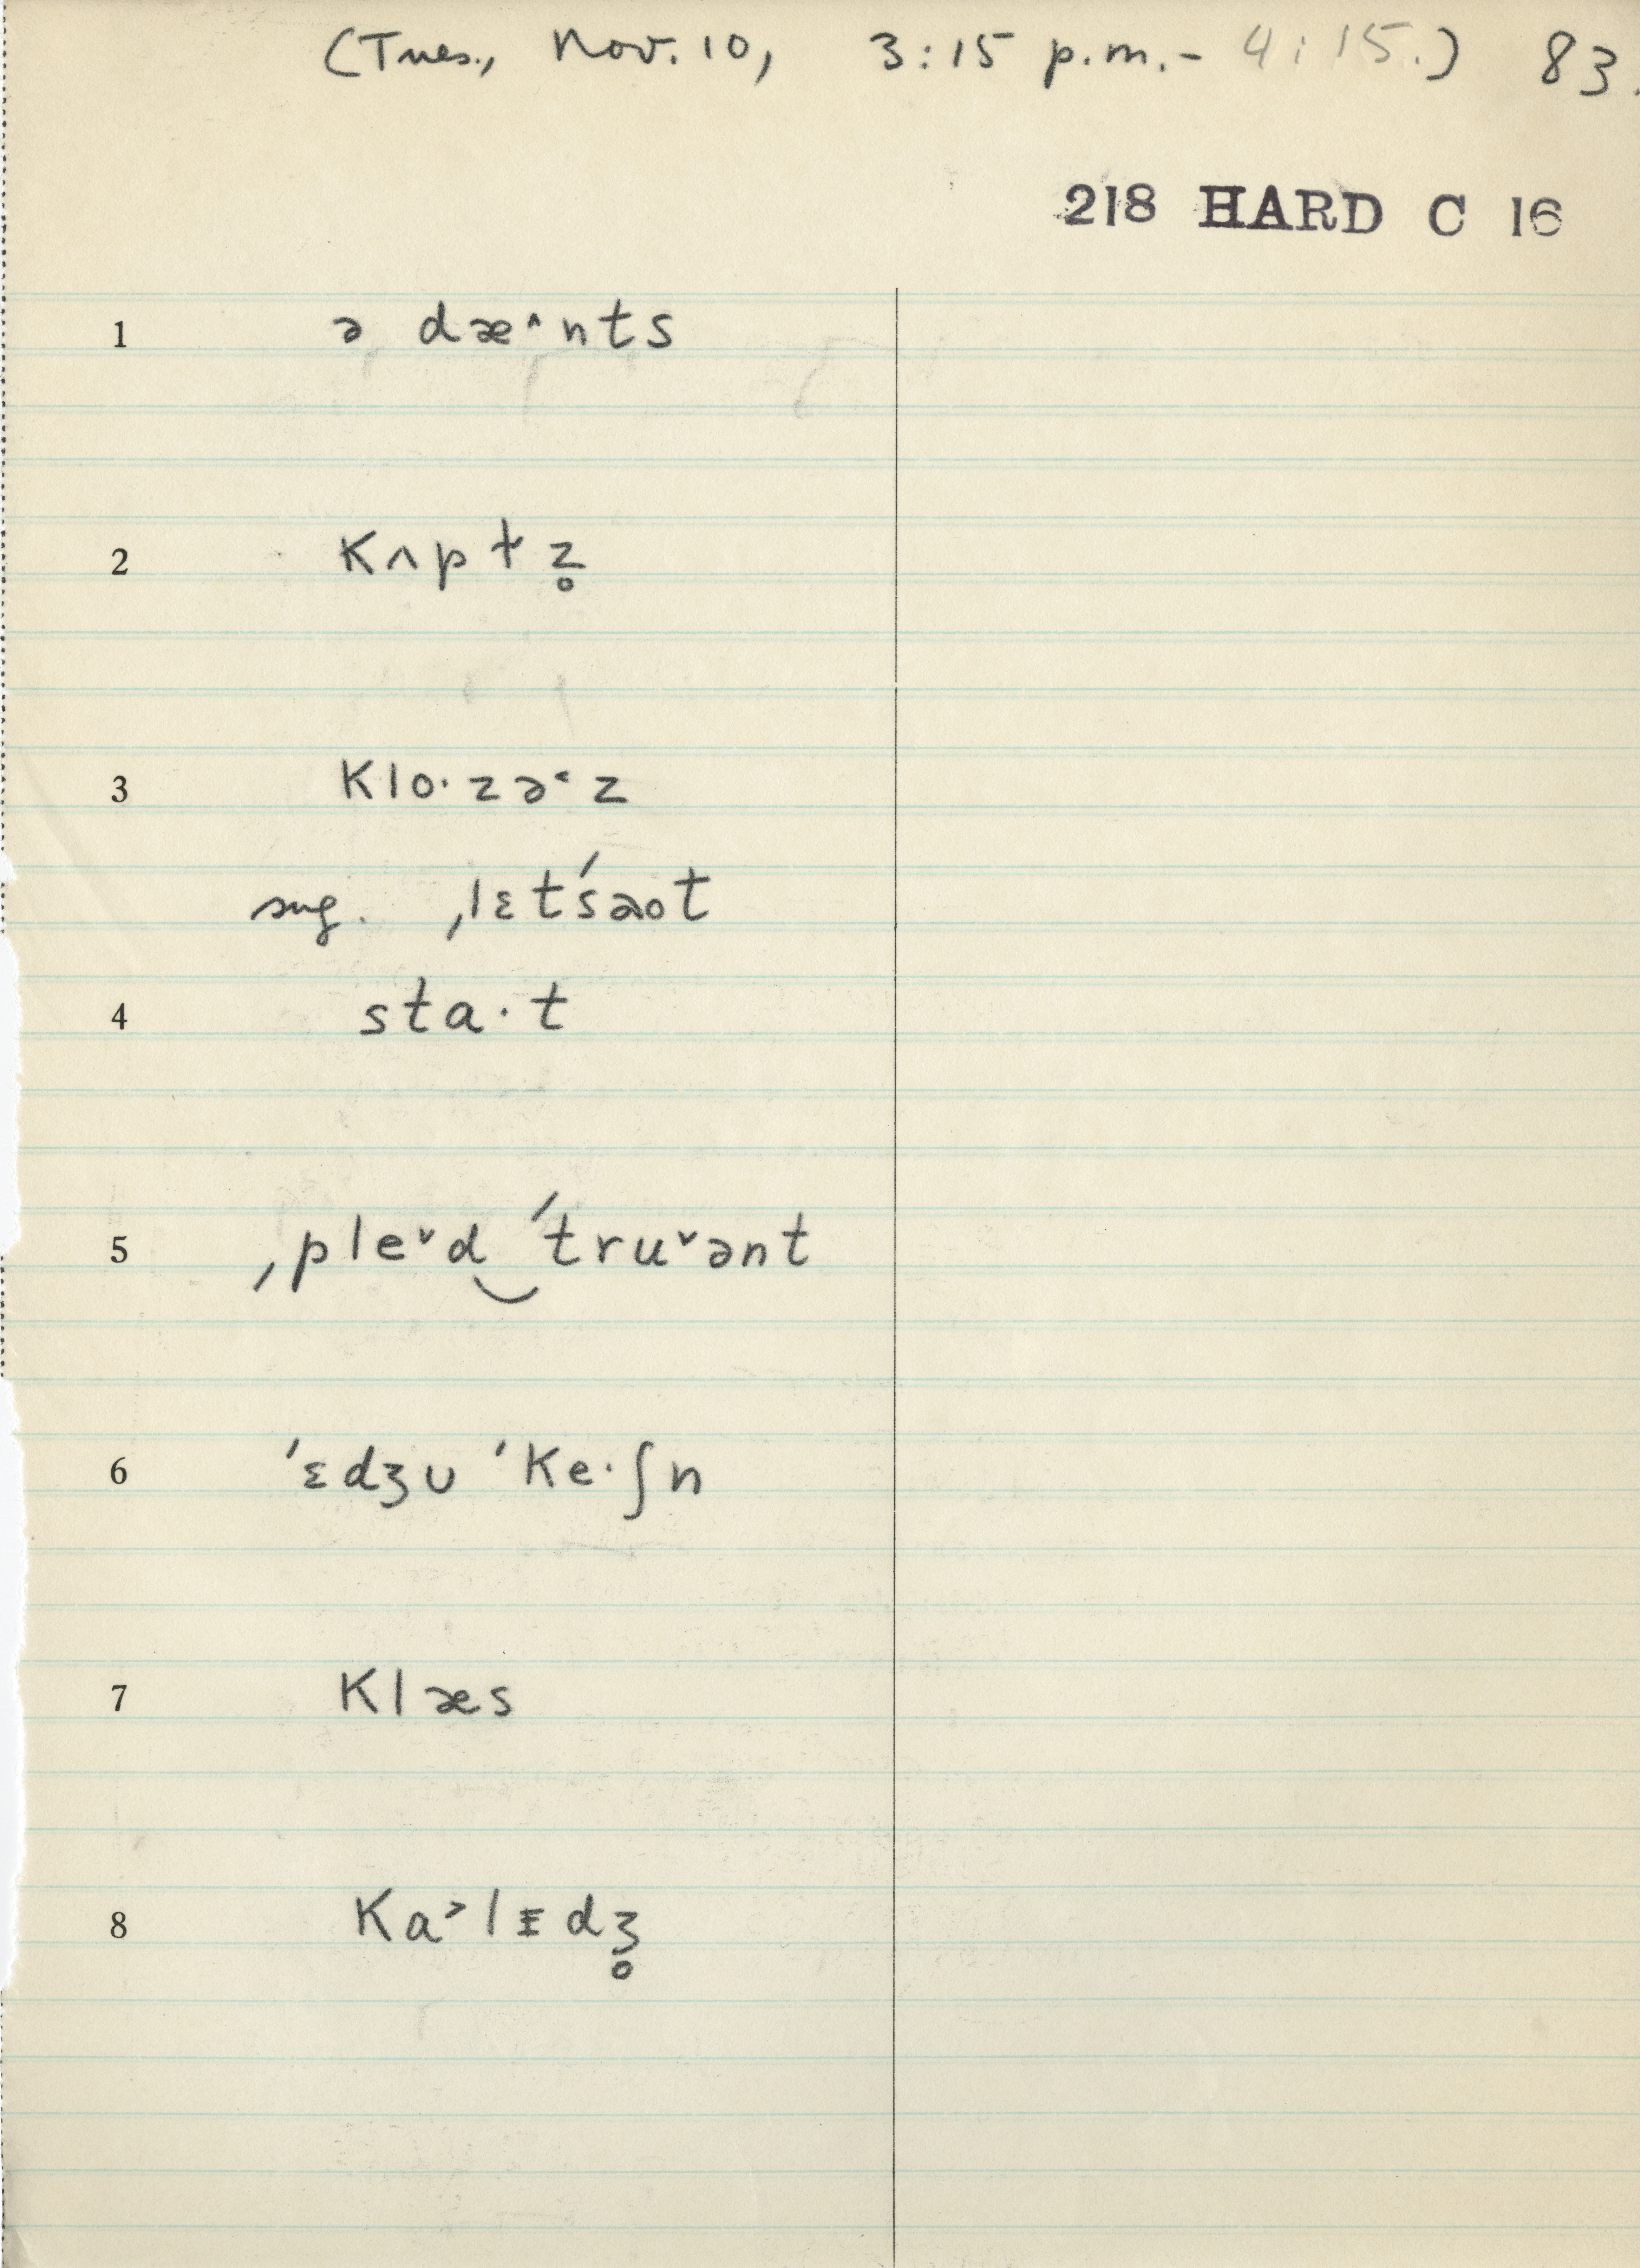 (Tues., Nov. 10, 3:15 p.m. - 4:15.) 83.
218 HARD C 16
1 ə dæ˄nts
2 kʌpɫz̥
3 klo·zə˂z
sug. ˌlɛt'səot
4 sta·t
5 ˌple˅d‿ˈtru˅ənt
6 ˈɛdʒʊ ˈke·ʃn
7 klæs
8 ka˃lɪdʒ̊